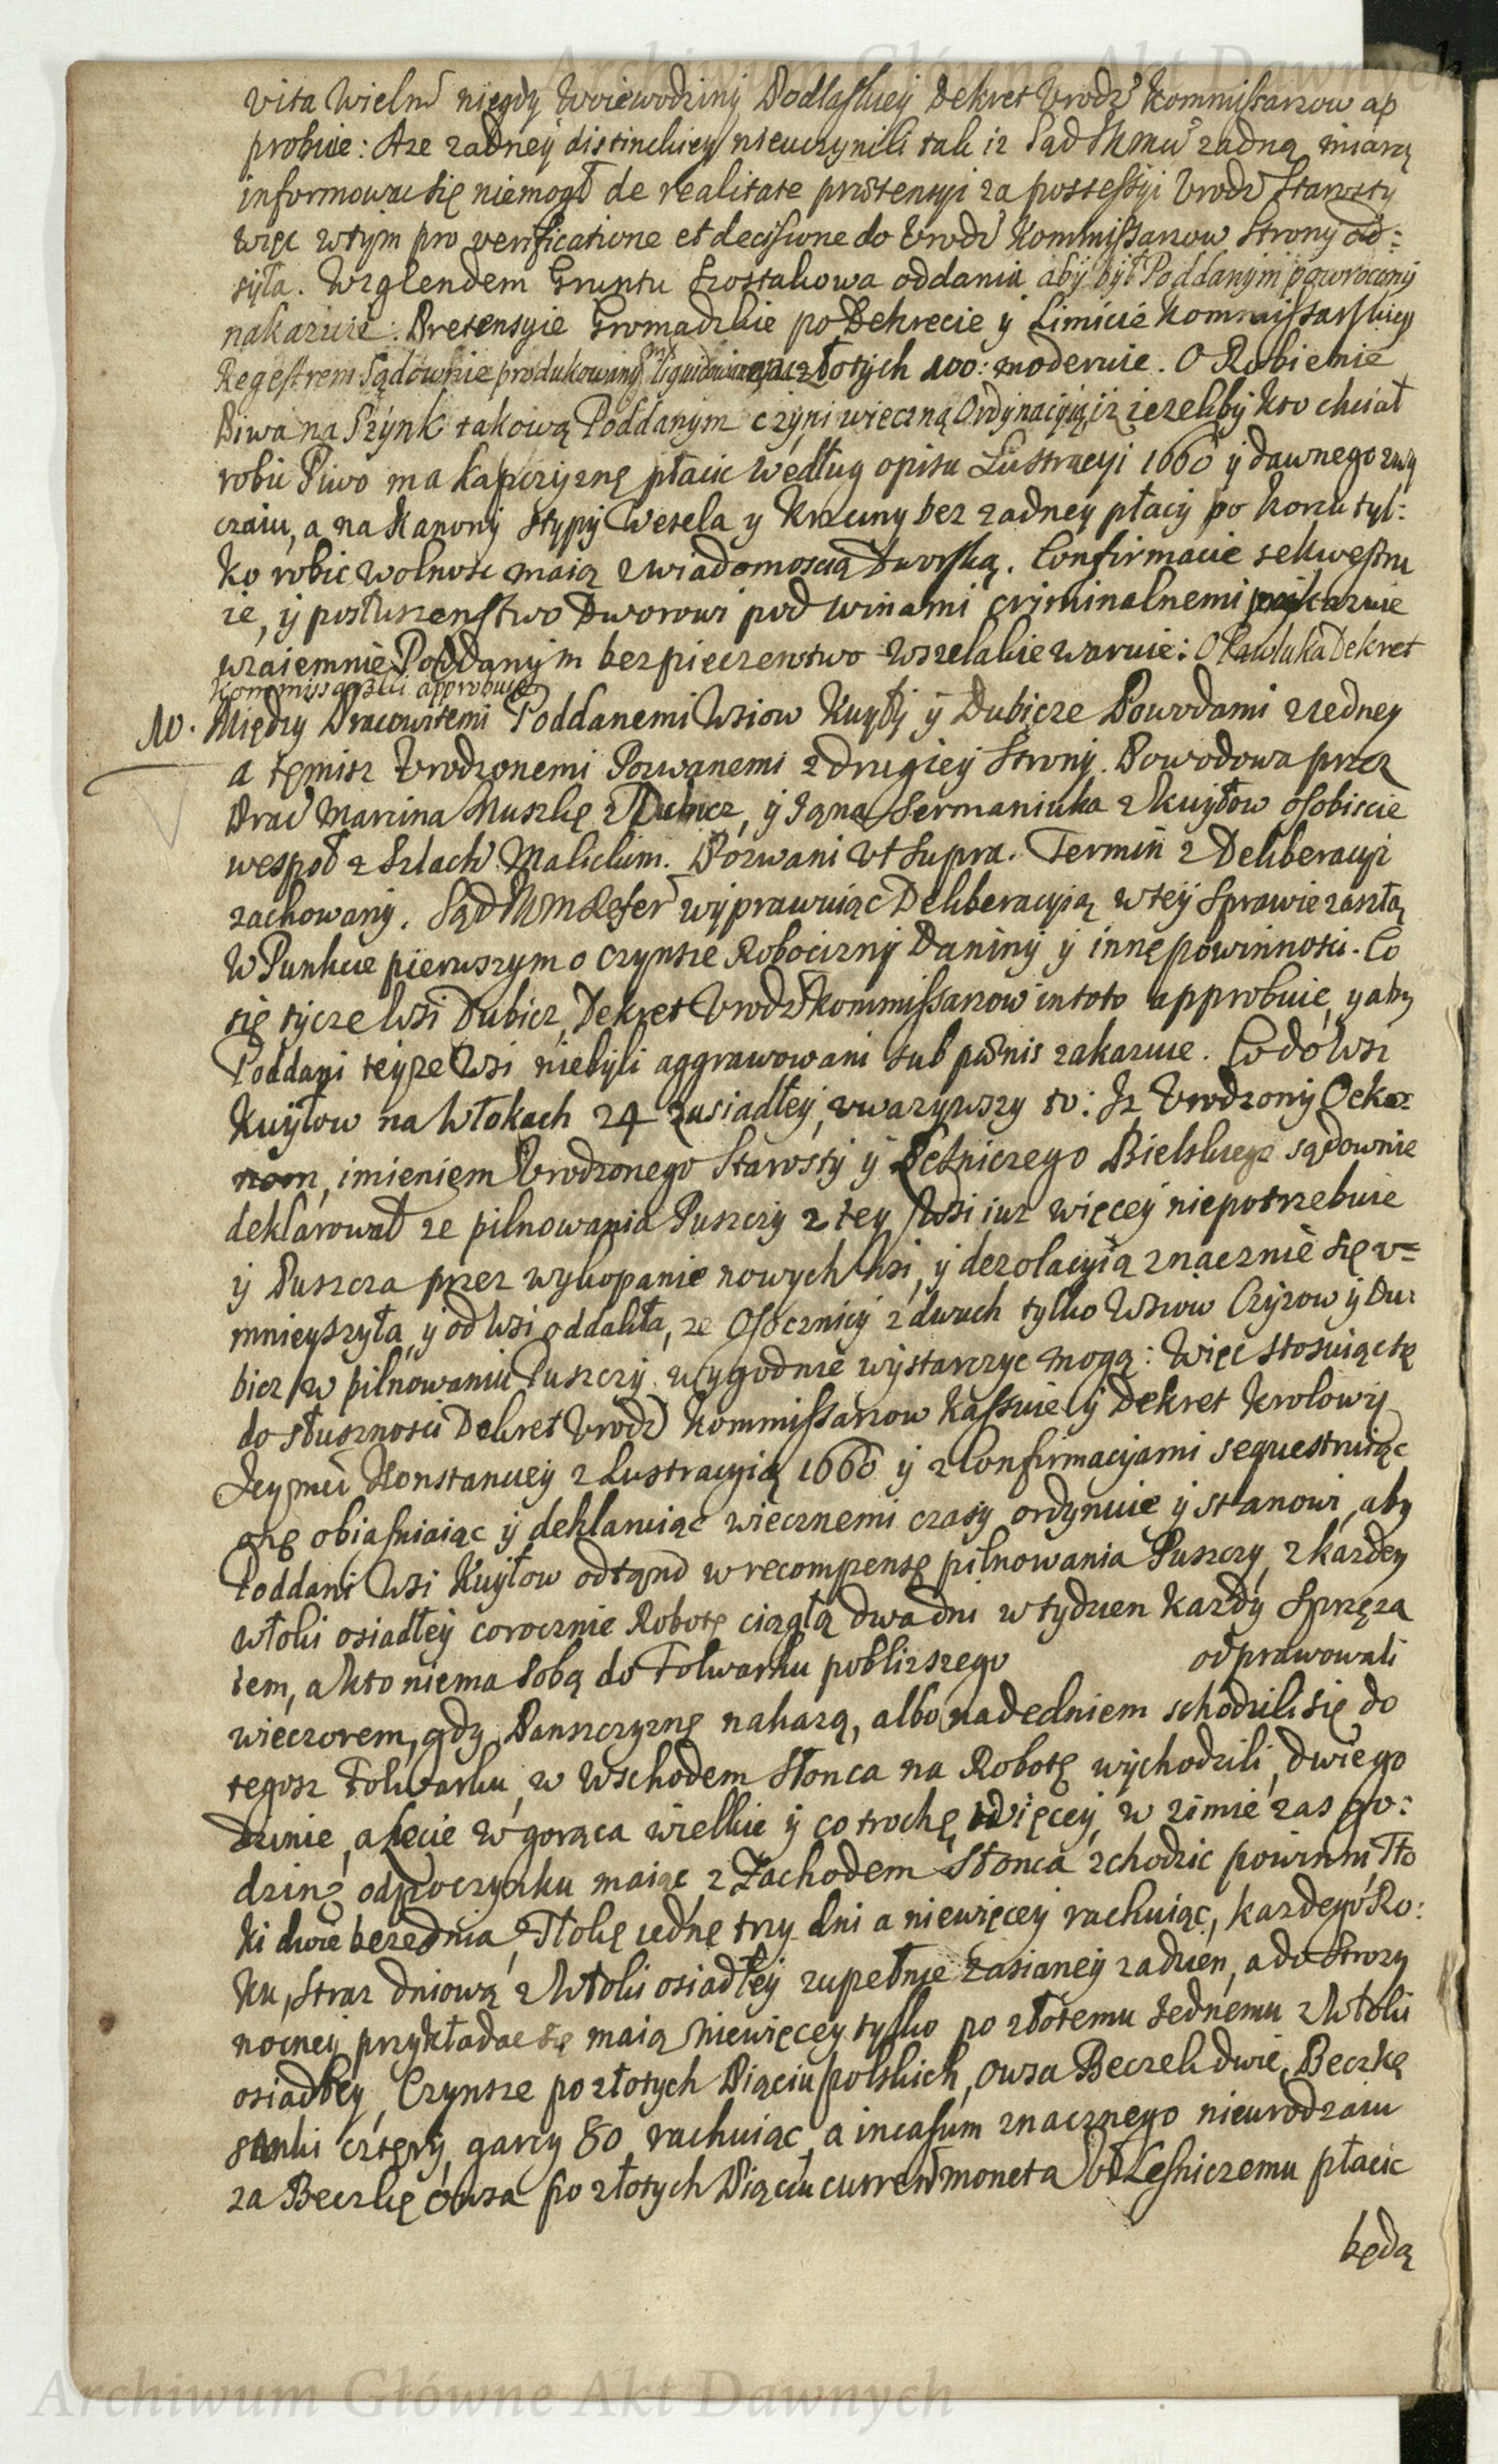 Archiwum Główne Akt Dawnych
vita Wieln niegdy Woiewodziny Podlaskiey Dekret Urodz Kommissarzow ap
probuie: Aze zadney distinkciey nieuczynili tak iz Sąd JKmci zadną miarą
informowac się niemogł de realitate prætensyi za possessyi Urodz Starosty
więc wtym pro verificatione et decisione do Urodz Kommissarzow Strony od=
syła. Wzglendem Gruntu Szostakowa oddania aby był Poddanym powrocony
nakazuie. Pretensyie Gromadzkie po Dekrecie y Limicie Kommissarskiey
Regestrem Sądownie produkowanym złotych 100: moderuie. O Robienie
Piwa na Szynk takową Poddanym czyni wieczną Ordynacyią, iz iezeliby kto chciał
robic Piwo ma kapczyznę płacic według opisu Lustracyi 1660 y dawnego zwy
czaiu, a na Kanony Stypy Wesela y Krzciny bez zadney płacy po korcu tyl=
ko robic wolnosc maią z wiadomoscią Dworską. Confirmacie sekwestru
ie, y posłuszenstwo Dworowi pod winami criminalnemi nakazuie
wzaiemnie Poddanym bezpieczenstwo wszelakie waruie: O Pawluka Dekret
Kommissarski approbuie
10. Między Pracowitemi Poddanemi Wsiow Kuyły y Dubicze Powodami z iedney
a temisz Urodzonemi Pozwanemi z drugiey Strony. Powodowa przez
Prac Marcina Muszkę z Dubicz, y Jana Sermaniuka z Kuyłow osobiscie
wespoł z Szlach Malickim. Pozwani ut Supra. Termin z Deliberacyi
zachowany. Sąd JKM Refer wyprawuiąc Deliberacyią w tey Sprawie zaszłą
W Punkcie pierwszym o Czynsze Robocizny Daniny y inne powinnosci. Co
się tycze Wsi Dubicz, Dekret Urodz Kommissarzow in toto approbuie, y aby
Poddani teyze Wsi niebyli aggrawowani sub pœnis zakazuie. Co do Wsi
Kuyłow na Włokach 24 zasiadłey, uwazywszy to: Iz Urodzony Oeko=
nom, imieniem Urodzonego Starosty y Lesniczego Bielskiego sądownie
deklarował ze pilnowania Puszczy z tey Wsi iuz więcey niepotrzebuie
y Puszcza przez wykopanie nowych Wsi, y dezolacyią znacznie się u=
mnieyszyła, y od Wsi oddaliła, ze Osocznicy z dwuch tylko Wsiow Czyzow y Du=
bicz w pilnowaniu Puszczy wygodnie wystarczyc mogą: Więc stosuiąc się
do słusznosci Dekret Urodz Kommissarzow Kassuie y Dekret Krolowy
Jeymci Konstancyey z Lustracyią 1660 y z Confirmacyiami sequestruiąc
onę obiasniaiąc y deklaruiąc wiecznemi czasy ordynuie y stanowi, aby
Poddani Wsi Kuyłow odtąnd w recompensę pilnowania Puszczy, z kazdey
Włoki osiadłey corocznie Robotę ciągłą dwa dni w tydzien kazdy Sprzęza
iem, a kto niema sobą do Folwarku poblizszego odprawowali
wieczorem, gdy Panszczyznę nakazą, albo nadedniem schodzili się do
tegosz Folwarku, w Wschodem Słonca na Robotę wychodzili, dwie go
dzinie, a Lecie w gorąca wielkie y co trochę więcey, w zimie zas go=
dzinę odpoczynku maiąc z Zachodem Słonca zchodzic powinni Tło
ki dwie bezednia, Tlokę iednę trzy dni a niewięcey rachuiąc, kazdego Ro=
ku, Straz dniową z Włoki osiadłey zupełnie zasianey zadzien, a do Strozy
nocney przykładac się maią niewięcey tylko po złotemu Jednemu z Włoki
osiadłey, Czynsze po złotych Piąciu polskich, owsa Beczek dwie, Beczkę
szanki cztery, garcy 80 rachuiąc, a incasum znacznego nieurodzaiu
za Beczkę owsa po złotych Piąciu curren moneta Ur Lesniczemu płacic
będą
Archiwum Główne Akt Dawnych